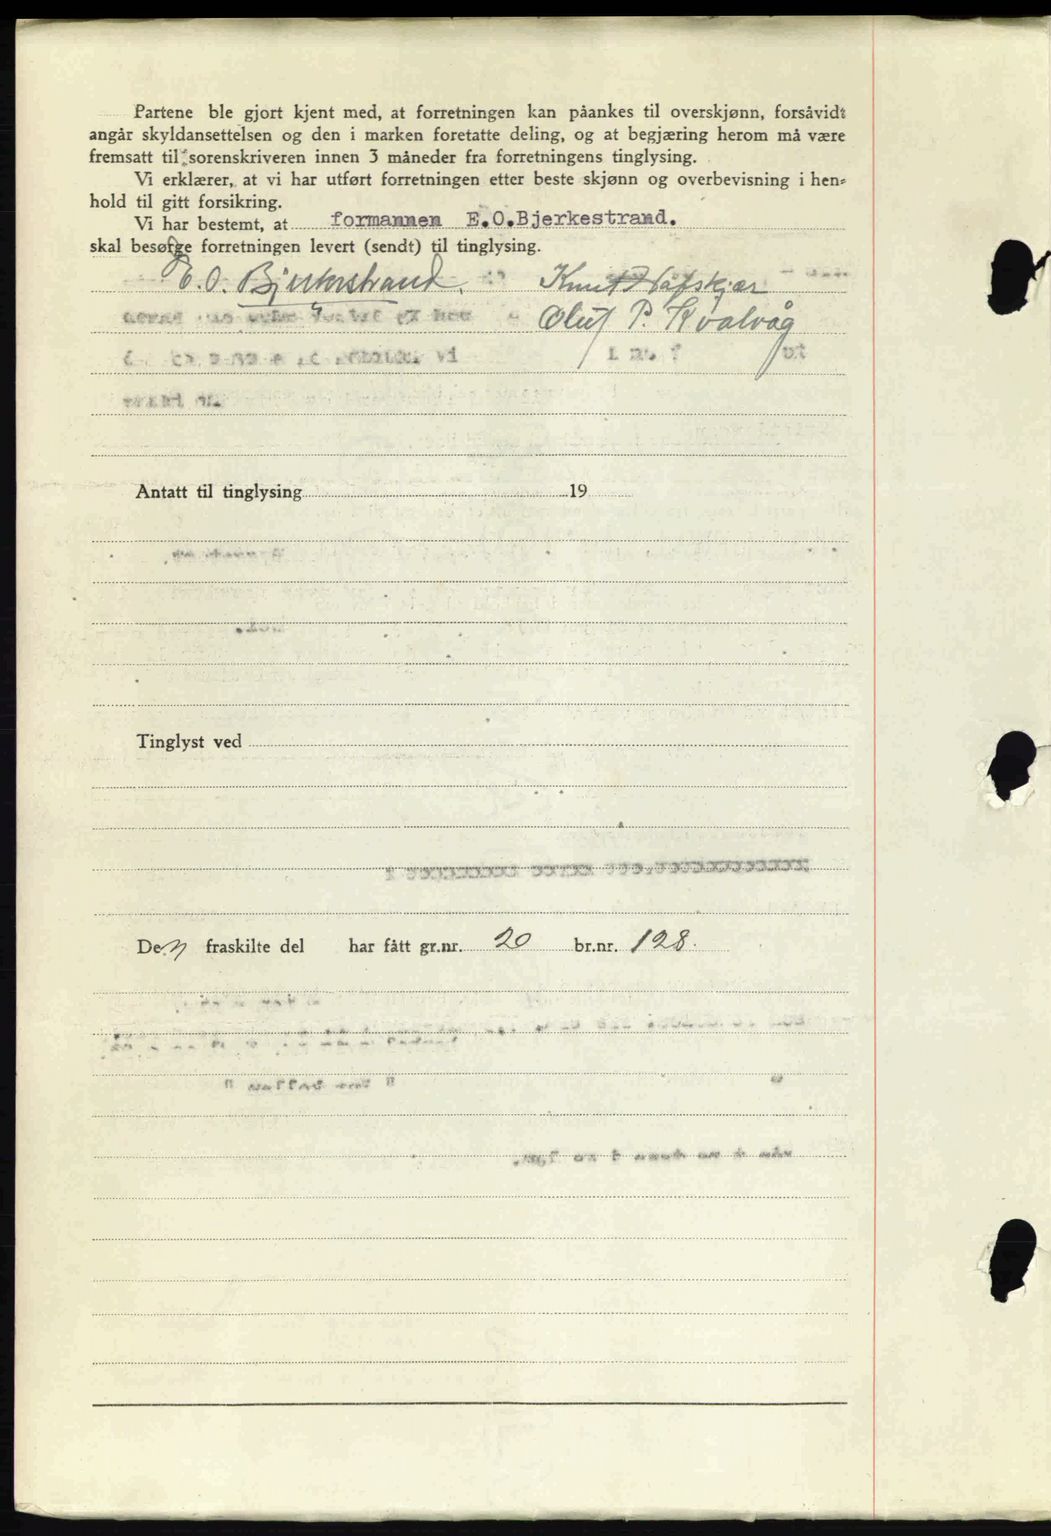 Partene ble gjort kjent med, at forretningen kan påankes til overskjønn, forsåvidt
angår skyldansettelsen og den i marken foretatte deling, og at begjæring herom må være
fremsatt til sorenskriveren innen 3 måneder fra forretningens tinglysing.
Vi erklærer, at vi har utført forretningen etter beste skjønn og overbevisning i hen-
hold til gitt forsikring.
Vi har bestemt, at formannen E.O.Bjerkestrand.
skal besørge forretningen levert (sendt) til tinglysing.
E. O. Bjerkestrand. Knut Nåfskjær
Oluf P. Kvalvåg
Antatt til tinglysing 19
Tinglyst ved
Den fraskilte del har fått gr.nr. 20 br.nr. 128.